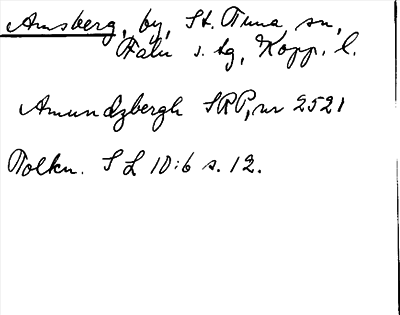 Amsberg, by, St. Tuna sn,
Falu s. tg, Kopp. l.
Amundzbergh SRP, nr 2521
Tolkn. SL 10:6 s. 12.